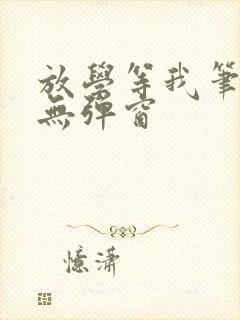 放學等我筆
無彈窗
憶瀟